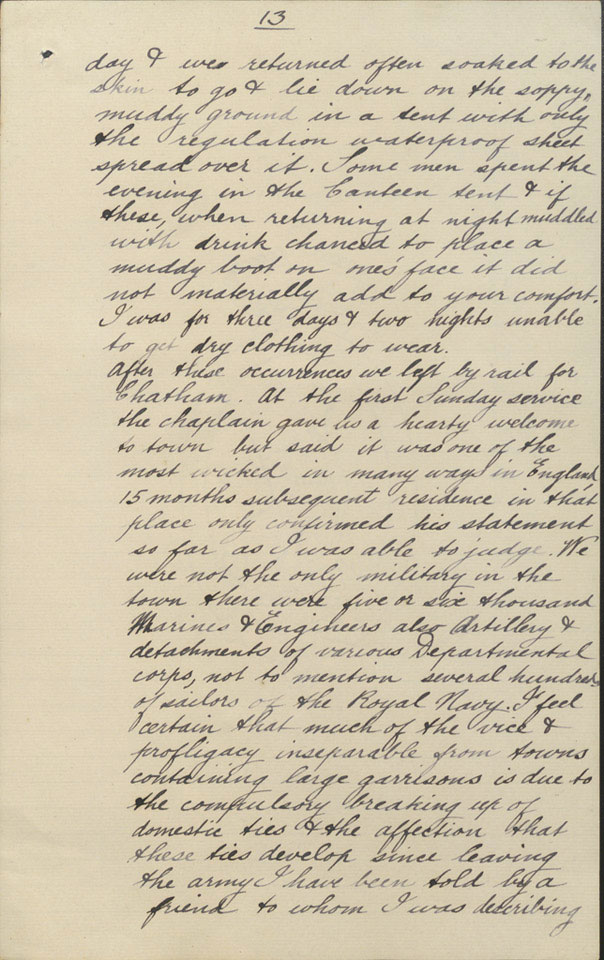 13
day & we returned often soaked to the
skin to go & lie down on the soppy,
muddy ground in a tent with only
the regulation waterproof sheet
spread over it. Some men spent the
evening in the Canteen tent & if
these, when returning at night muddled
with drink chanced to place a
muddy boot on one's face it did
not materially add to your comfort.
I was for three days & two nights unable
to get dry clothing to wear.
After these occurrences we left by rail for
Chatham. At the first Sunday service
the chaplain gave us a hearty welcome
to town but said it was one of the
most wicked in many ways in England,
15 months subsequent residence in that
place only confirmed his statement
so far as I was able to judge. We
were not the only military in the
town there were five or six thousand
Marines & Engineers also Artillery &
detachments of various Departmental
corps, not to mention several hundreds
of sailors of the Royal Navy. I feel
certain that much of the vice &
profligacy inseparable from towns
containing large garrisons is due to
the compulsory breaking up of
domestic ties & the affection that
these ties develop since leaving
the army I have been told by a
friend to whom I was describing